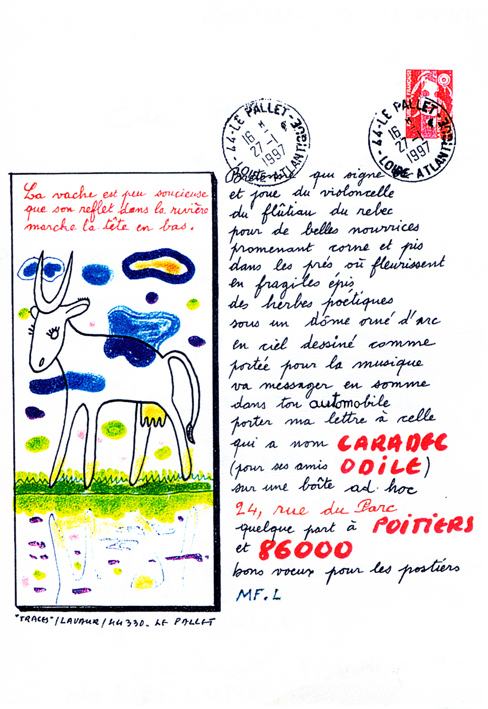 44-LE PALLET-
16 H
27-1
1997
LOIRE-ATLANTIQUE
44-LE PALLET-
16 H
27-1
1997
LOIRE-ATLANTIQUE
La vache est peu soucieuse
que son reflet dans la rivière
marche la tête en bas.
qui signe
et joue du violoncelle
du flûtiau du rebec
pour de belles nourrices
promenant corne et pis
dans les prés où fleurissent
en fragiles épis
des herbes poétiques
sous un dôme orné d'arc
en ciel dessiné comme
portée pour la musique
va messager en somme
dans ton automobile
porter ma lettre à celle
qui a nom CARADEC
(pour ses amis ODILE)
sur une boîte ad hoc
24, rue du Parc
quelque part à POITIERS
et 86000
bons voeux pour les postiers
MF.L
"TRACES"/LAVAUR/44330. LE PALLET